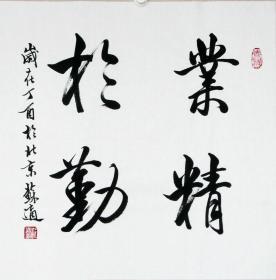 業精
於勤
歲在丁酉於北京蘇適